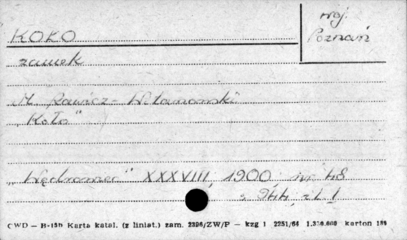 KOŁO
woj.
Poznań
zamek
M. Rawicz-Witanowski
"Koło"
"Wędrowiec" XXXVIII, 1900 nr 48
s. 944, il. 1
CWD — H-159 Karta katal. (z liniat.) zam. 2396/ZW/P — kzg 1 2251/66 1.350.000 karton 189